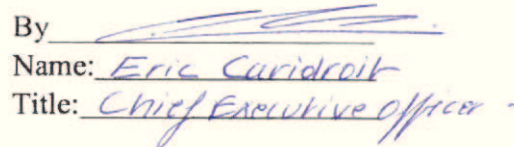 By
Name: Eric Caridroit
Title: Chief Executive Officer -